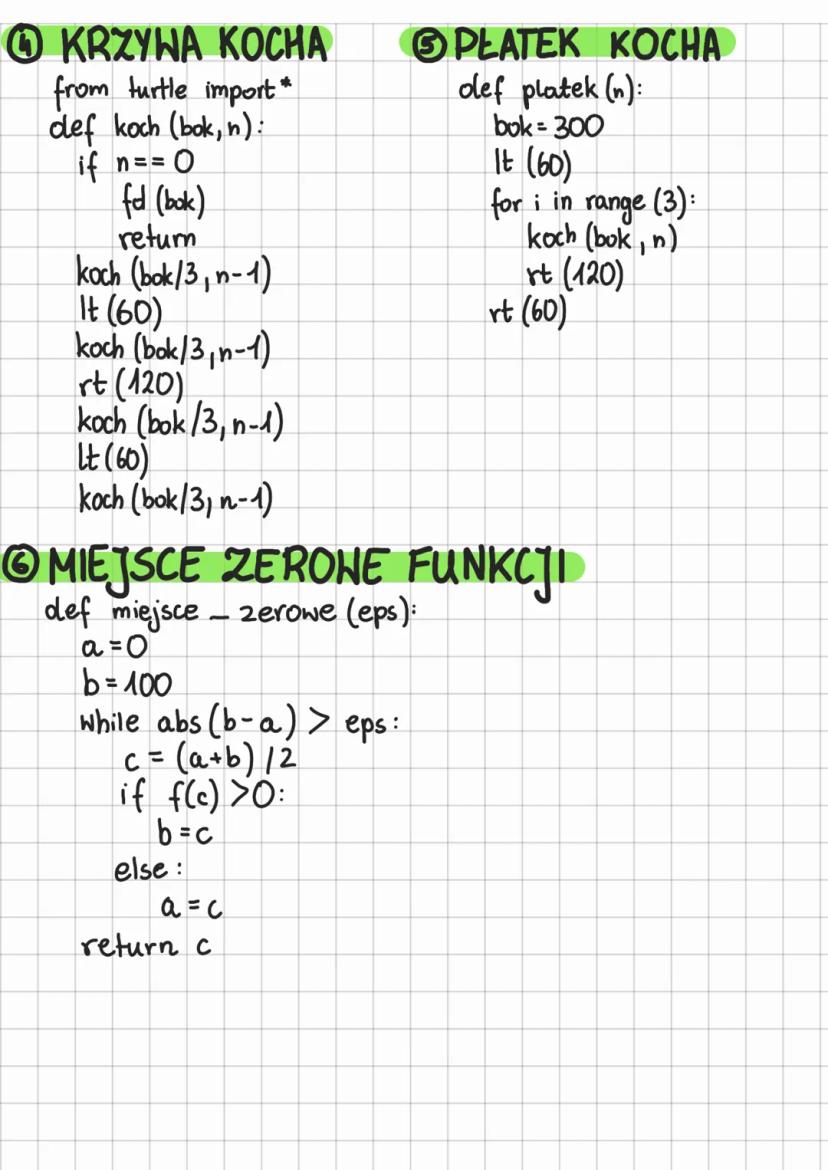 ④ KRZYWA KOCHA
from turtle import*
def koch (bok, n):
if n == 0
fd (bok)
return
koch (bok/3, n-1)
lt (60)
koch (bok/3, n-1)
rt (120)
koch (bok/3, n-1)
lt (60)
koch (bok/3, n-1)
⑤ PŁATEK KOCHA
def platek (n):
bok = 300
lt (60)
for i in range (3):
koch (bok, n)
rt (120)
rt (60)
⑥ MIEJSCE ZEROWE FUNKCJI
def miejsce _ zerowe (eps):
a = 0
b = 100
while abs (b-a) > eps:
c = (a+b) /2
if f(c) >0:
b = c
else:
a = c
return c